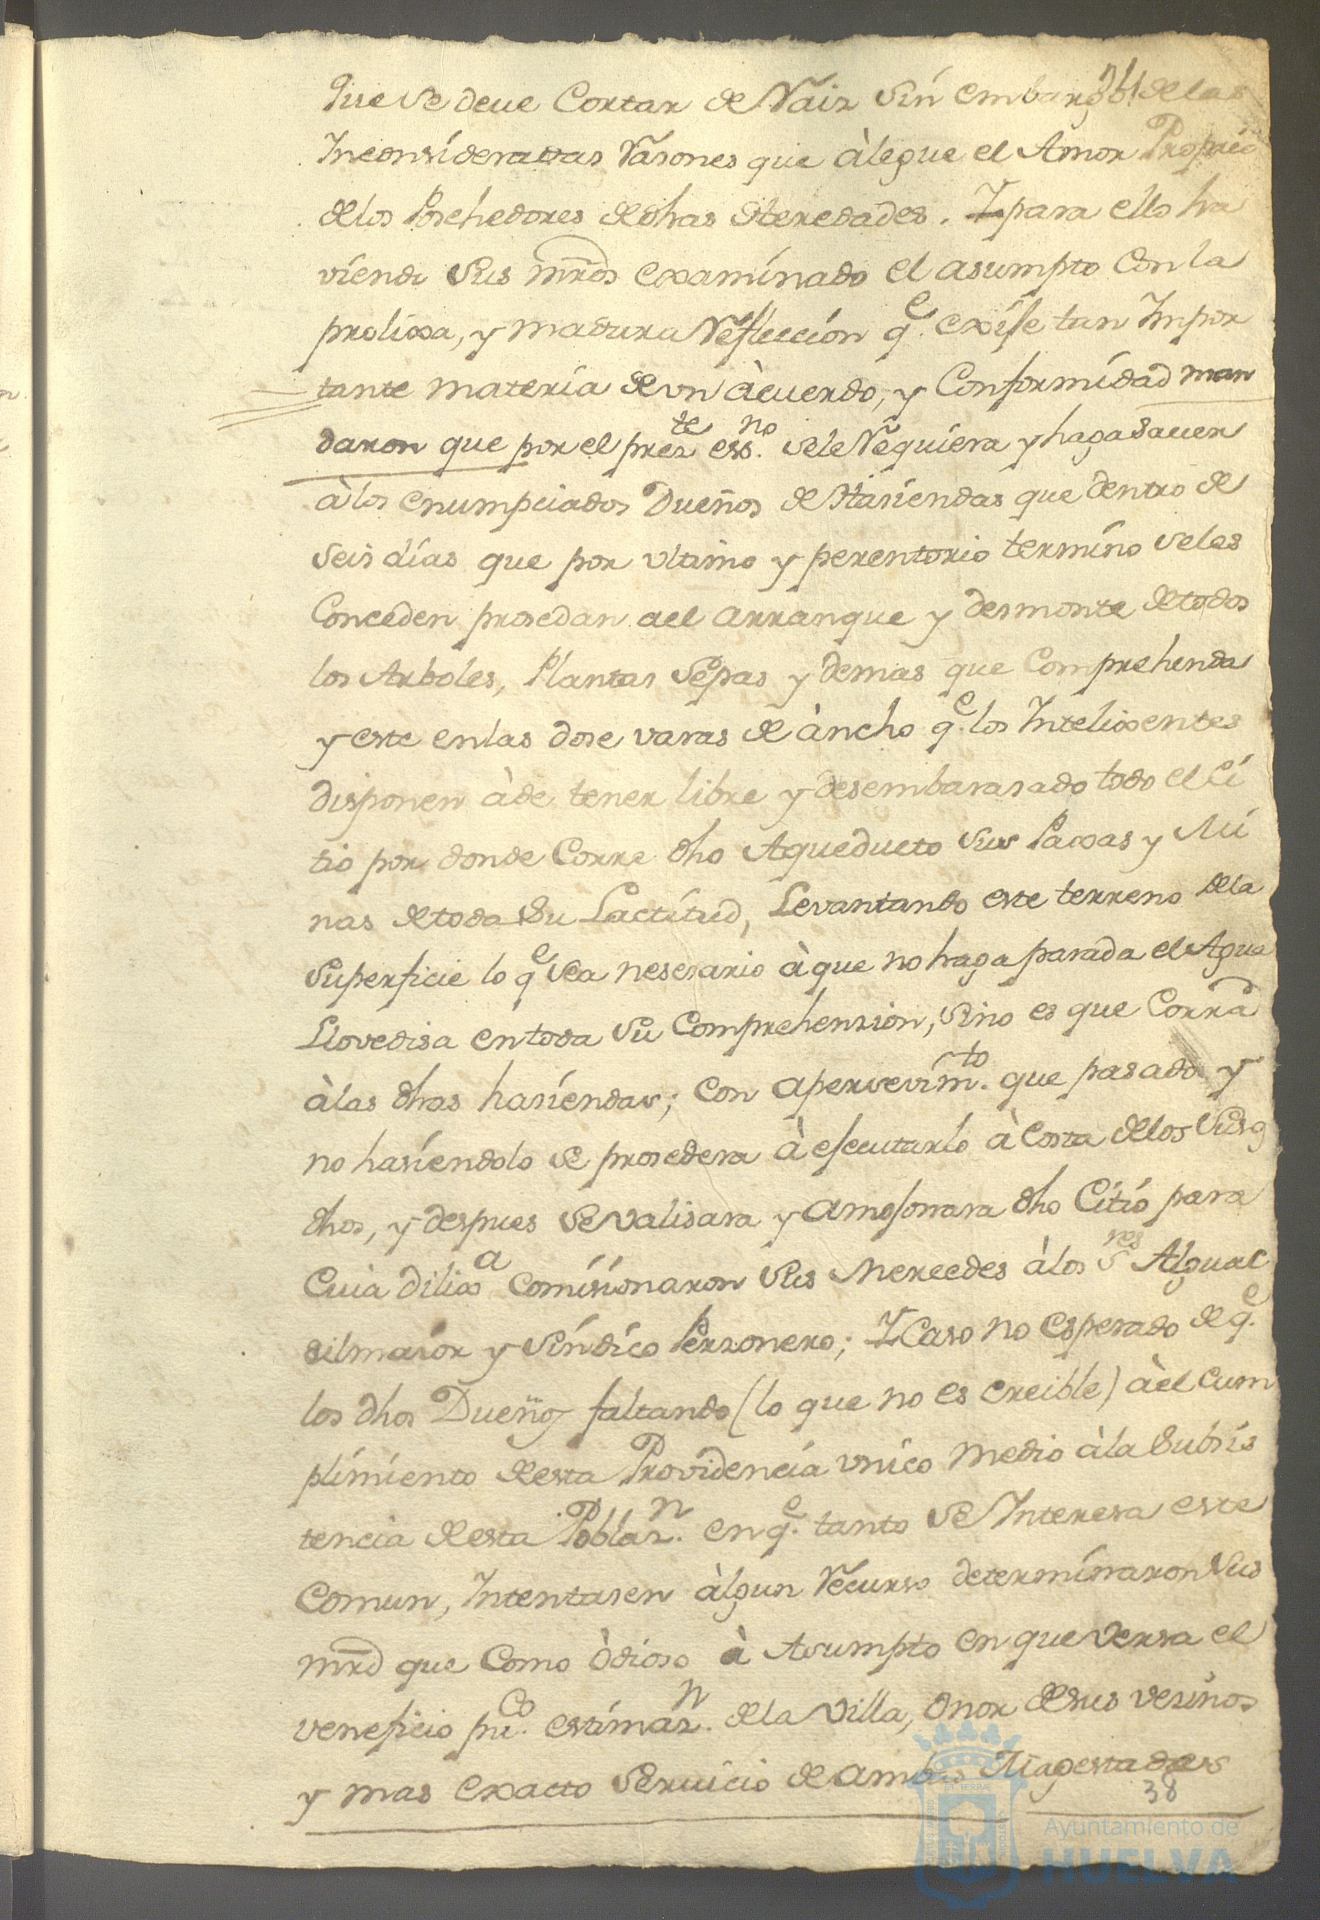 Que se deve Cortar de Raiz sin embargo de las
Inconsideradas Rasones que àlegue el Amor Proprio
de los Poschedores de dhas Heredades. Y para ello ha
viendo Sus mrds examinado el asumpto Con la
prolixa, y madura Reflección q.e exise tan Impor
tante materia de un àcuerdo, y Conformidad man
daron que por el prez.te ess.no se le Requiera y haga saver
à los enumpciados Dueños de Hasiendas que dentro de
seis días que por ultimo y perentorio termino se les
Conceden prosedan ael arranque y desmonte de todos
los Arboles, Plantas Sepas y demas que Comprehenda
y este en las dose varas de àncho q.e los Intelixentes
disponen àde tener libre y desembarasado todo el Ci
tio por donde Corre dho Aqueducto sus Paxas y Mi
nas de toda su Lactitud, Levantando este terreno de la
superficie lo q.e sea nesesario à que no haga parada el Agua
Llovedisa en toda su Comprehension, sino es que Corra
à las dhas hasiendas; Con apersevim.to que pasado y
no hasiendolo se prosedera à esecutarlo à Costa de los Suso
dhos, y despues se valisara y amosonara dho Citio para
Cuia dilix.a Comisionaron Sus Mercedes à los S.res Alguac
silmaior y Síndico Perzonero; Y Caso no esperado de q.e
los dhos Dueños faltando (lo que no es creible) àel cum
plimiento de esta Providencia unico medio à la subsis
tencia de esta Poblaz.n en q.e tanto se Interesa este
Comun, Intentasen àlgun Recurso determinaron Sus
mrd que Como òdioso à Asumpto en que versa el
veneficio pu.co estimaz.n de la Villa, Onor de sus vezinos
y mas exacto Servicio de ambas Magestades
38
Ayuntamiento de
HUELVA